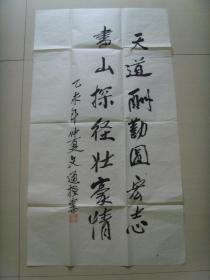 天道酬勤圆宏志
书山探径壮豪情
乙未年仲夏文通授业